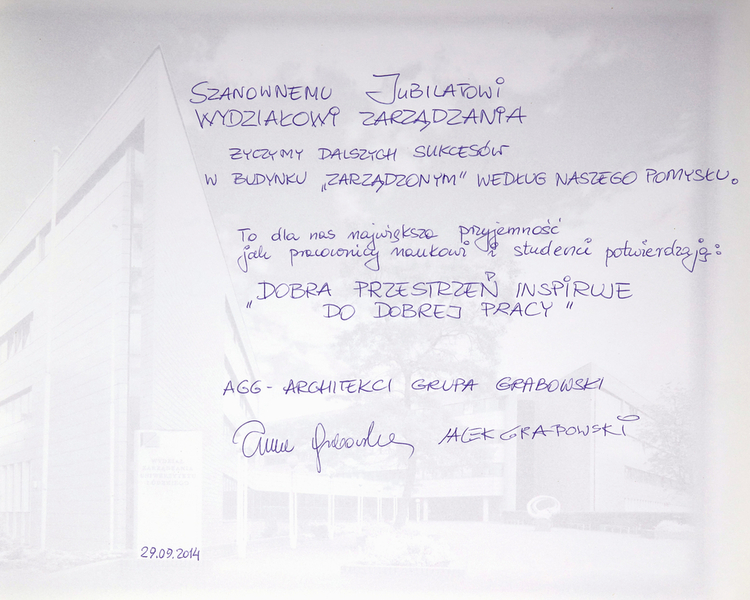 SZANOWNEMU JUBILATOWI
WYDZIAŁOWI ZARZĄDZANIA
ŻYCZYMY DALSZYCH SUKCESÓW
W BUDYNKU „ZARZĄDZONYM" WEDŁUG NASZEGO POMYSŁU.
To dla nas największa przyjemność
jak pracownicy naukowi i studenci potwierdzają:
„DOBRA PRZESTRZEŃ INSPIRUJE
DO DOBREJ PRACY"
AGG - ARCHITEKCI GRUPA GRABOWSKI
Anna Grabowska JACEK GRABOWSKI
29.09.2014